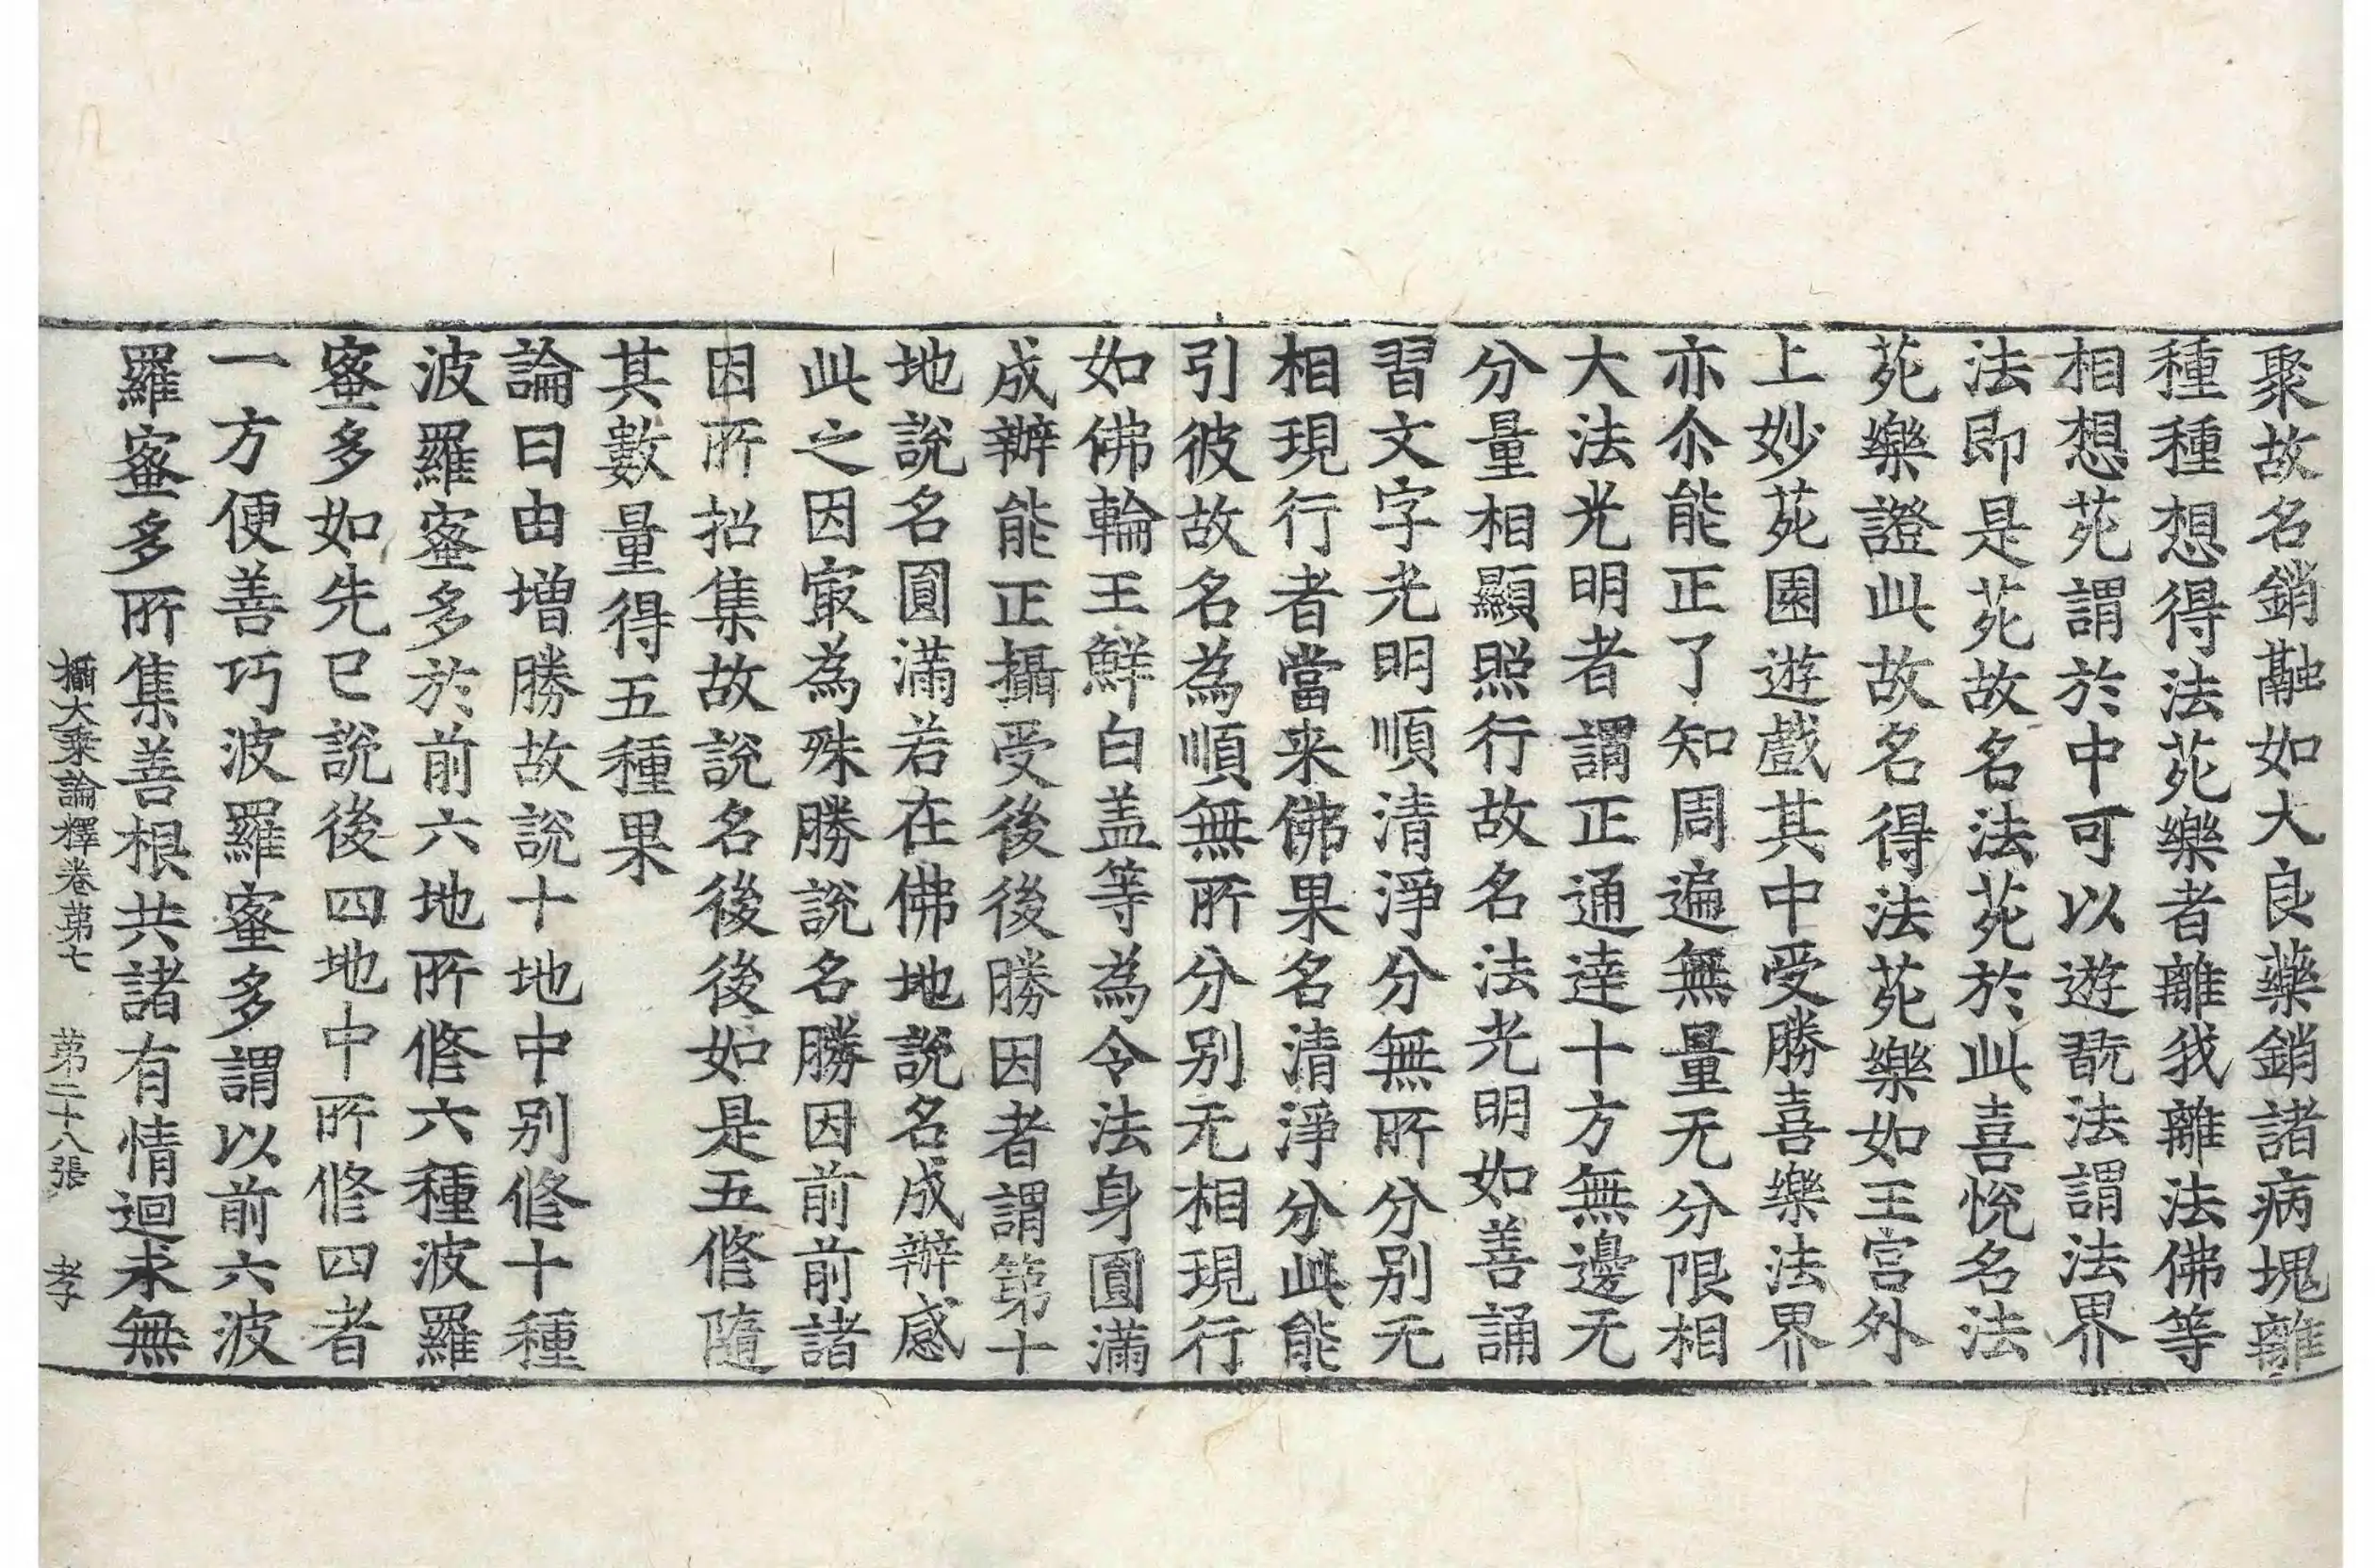 聚故名銷融如大良藥銷諸病塊離
種種想得法苑樂者離我離法佛等
相想苑謂於中可以遊翫法謂法界
法即是苑故名法苑於此喜悅名法
苑樂證此故名得法苑樂如王宮外
上妙苑園遊戲其中受勝喜樂法界
亦尒能正了知周遍無量无分限相
大法光明者謂正通達十方無邊无
分量相顯照行故名法光明如善誦
習文字光明順清淨分無所分別无
相現行者當来佛果名清淨分此能
引彼故名為順無所分別无相現行
如佛輪王鮮白盖等為令法身圓滿
成辦能正攝受後後勝因者謂第十
地說名圓滿若在佛地說名成辦感
此之因㝡為殊勝說名勝因前前諸
因所招集故說名後後如是五修隨
其數量得五種果
論曰由增勝故說十地中別修十種
波羅蜜多於前六地所修六種波羅
蜜多如先已說後四地中所修四者
一方便善巧波羅蜜多謂以前六波
羅蜜多所集善根共諸有情迴求無
攝大乘論釋卷第七 第二十八張 孝